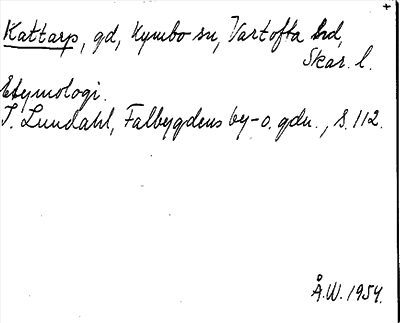 +
Kattarp, gd, Kymbo sn, Vartofta hd,
Skar. l.
Etymologi.
I. Lundahl, Falbygdens by-o. gdn., s. 112.
Å.W. 1954.